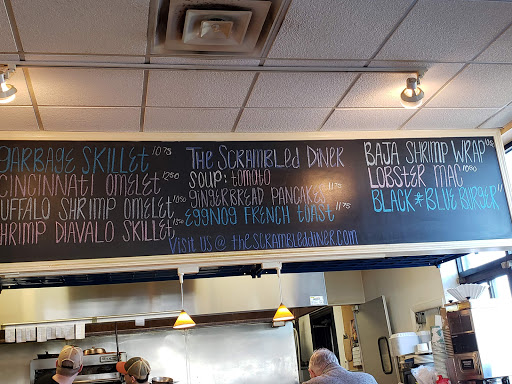 GARBAGE SKILLET 10.75
CINCINNATI OMELET 12.50
BUFFALO SHRIMP OMELET 10.50
SHRIMP DIAVALO SKILLET
THE SCRAMBLED DINER
SOUP: TOMATO
GINGERBREAD PANCAKES 11.75
EGGNOG FRENCH TOAST 11.75
VISIT US @ thescrambleddiner.com
BAJA SHRIMP WRAP
LOBSTER MAC 10.50
BLACK*BLUE BURGER